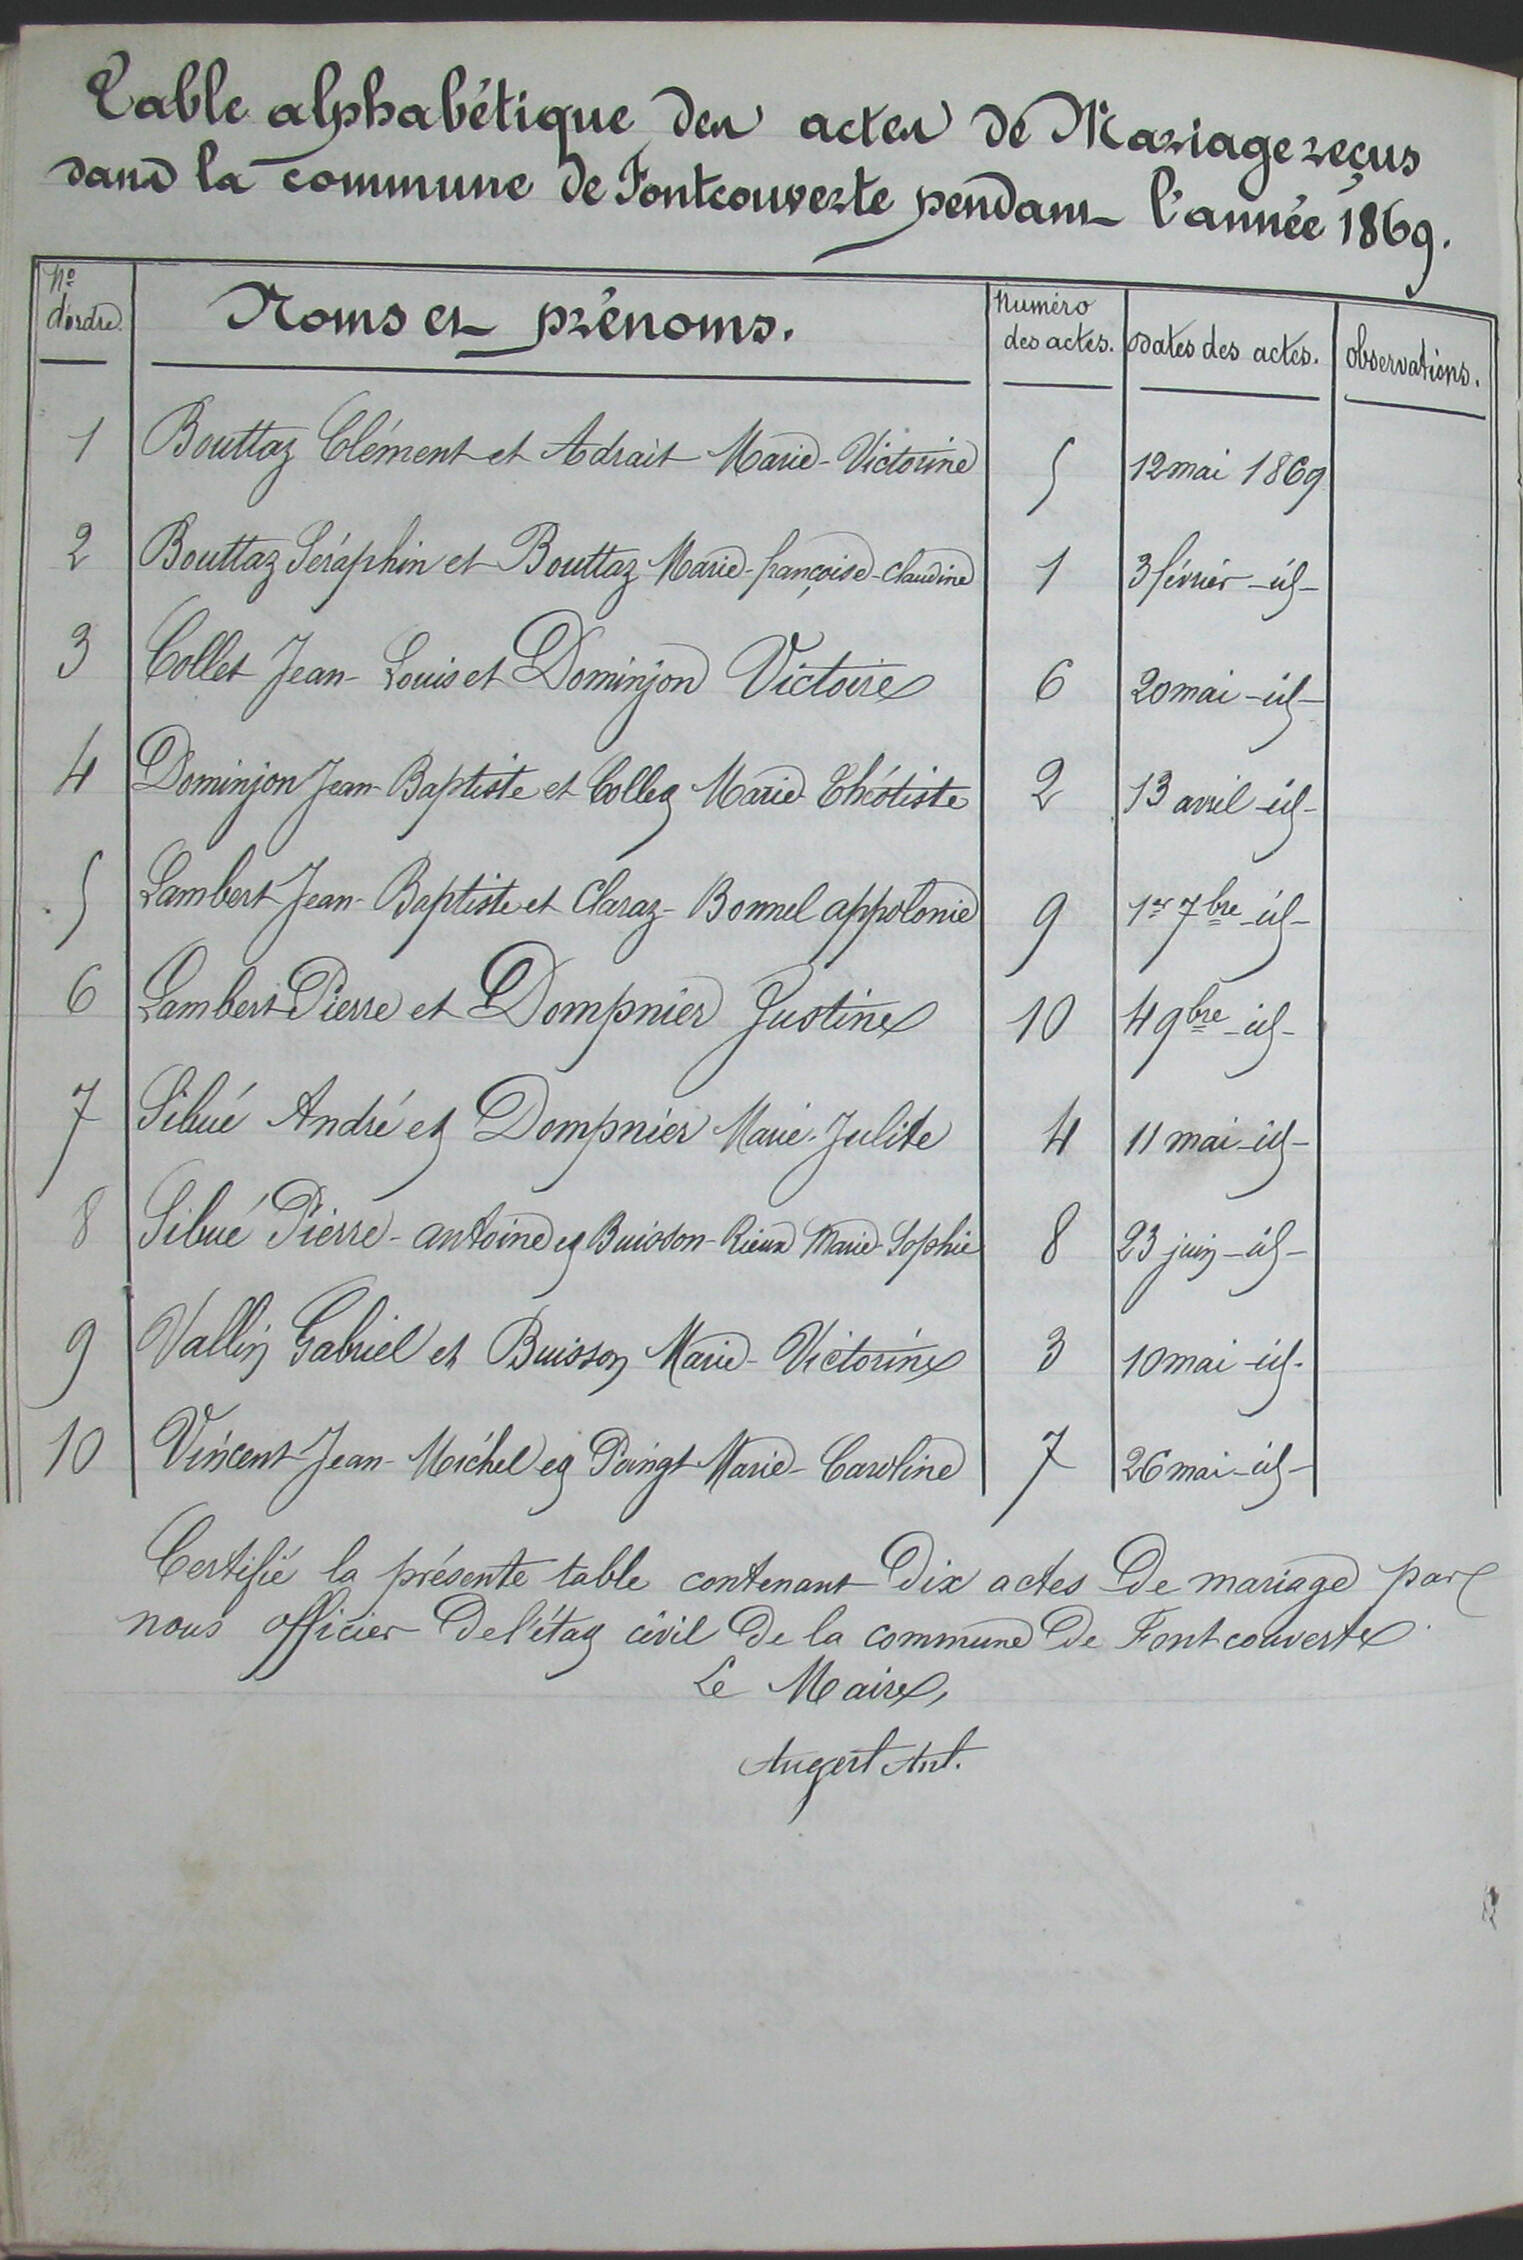 Table alphabétique des actes de Mariage reçus
dans la commune de Fontcouverte pendant l'année 1869.
Nº d'ordre. Noms et prénoms. Numéro des actes. Dates des actes. Observations.
1 Bouttaz Clément et Adrait Marie-Victorine 5 12 mai 1869
2 Bouttaz Séraphin et Bouttaz Marie-françoise-Claudine 1 3 février -id-
3 Collet Jean-Louis et Dominjon Victoire 6 20 mai -id-
4 Dominjon Jean-Baptiste et Collet Marie Théotiste 2 13 avril -id-
5 Lambert Jean-Baptiste et Claraz-Bonnel appolonie 9 1er 7bre -id-
6 Lambert Pierre et Dompnier Justine 10 4 9bre -id-
7 Sibué André et Dompnier Marie-Julite 4 11 mai -id-
8 Sibué Pierre-antoine et Buisson-Rieux Marie-Sophie 8 23 juin -id-
9 Vallin Gabriel et Buisson Marie-Victorine 3 10 mai -id-
10 Vincent Jean-Michel et Poingt Marie-Caroline 7 26 mai -id-
Certifié la présente table contenant Dix actes De mariage par
nous officier De l'état civil De la commune De Fontcouverte.
Le Maire,
Augert Ant.